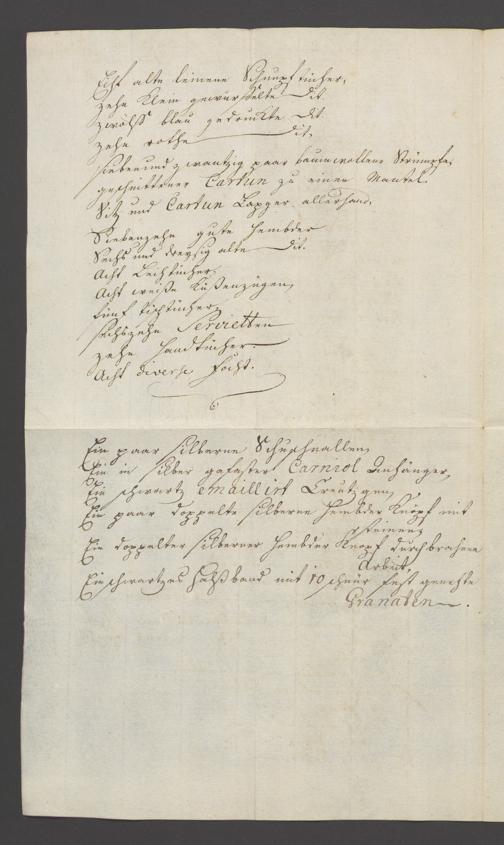 Acht alte leinene Schnupftücher,
zehn klein gewürfelte dit.
zwölff blau gedruckte dit.
zehn rothe dit.
siebenundzwantzig paar baumwollene Strümpfe,
geschnittener Cartun zu einen Mantel.
Zitz und Cartun Lapger allerhand,
Siebenzehn gute Hembder
Sechs und dreysig alte dit.
Acht Leichtücher,
Acht weiße Küßenzügen,
fünf Tischtücher,
sechszehn Servietten
zehn Handtücher
Acht diverse
Ein paar silberne Schuhschnallen,
Ein in Silber gefaster Carniol Anhänger,
Ein schwartz emaillirt Creutzgen,
Ein paar doppelte silberne Hembder Knöpf mit
steiner
Ein doppelter silberner Hembder Knopf durchbrochene
Arbeit,
Ein schwartzes Halßband mit 10 schnür fest genehte
Granaten.